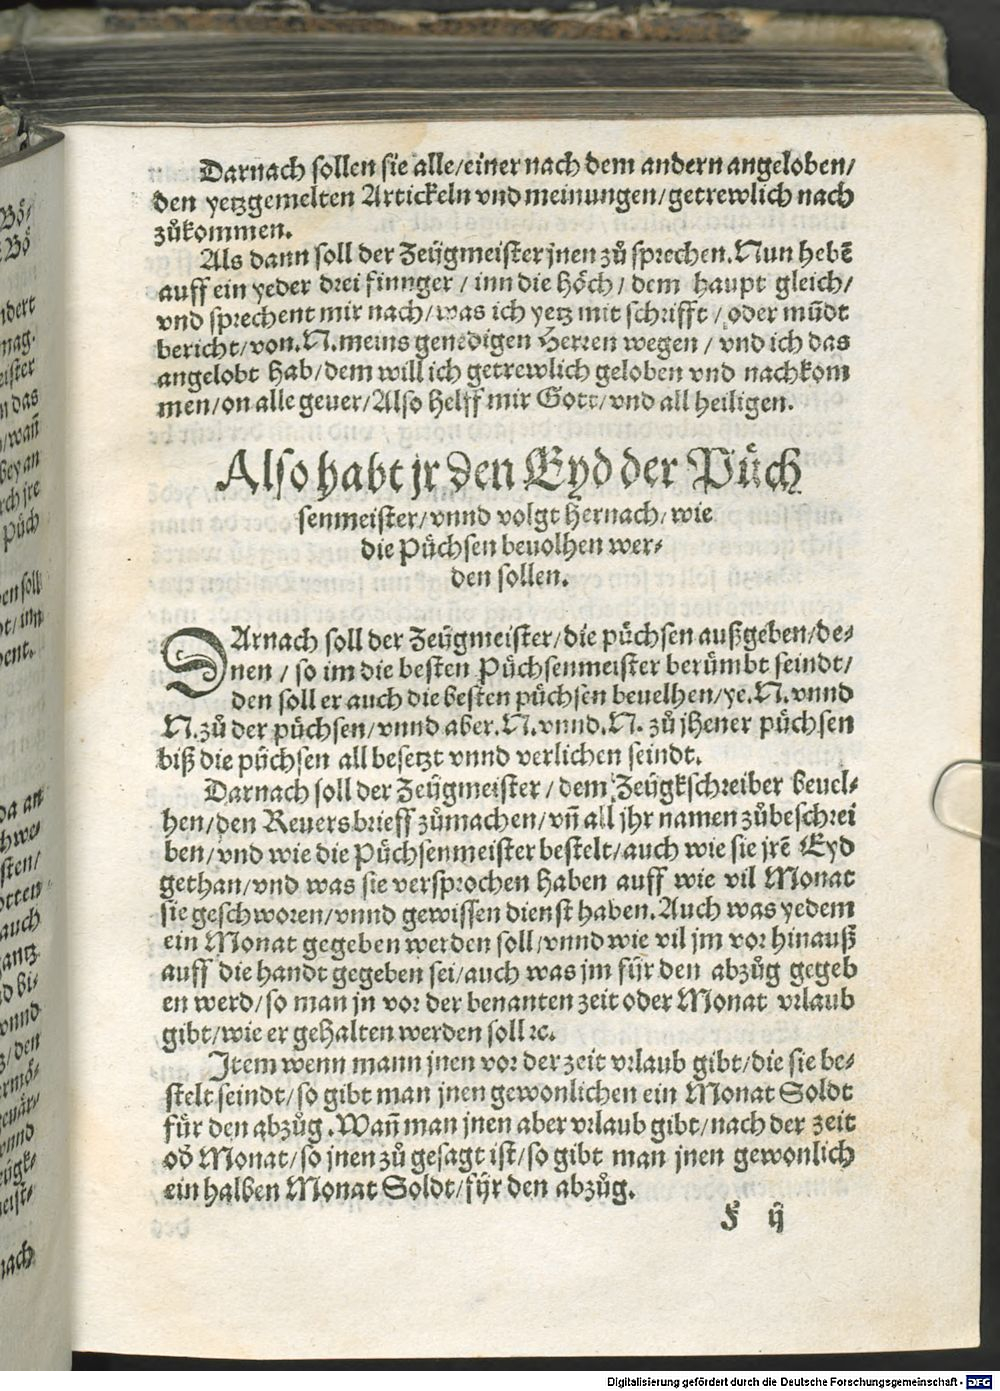 Darnach sollen sie alle/einer nach dem andern angeloben/
den yetzgemelten Artickeln vnd meinungen/getrewlich nach
zůkommen.
Als dann soll der Zeügmeister jnen zů sprechen. Nun hebẽ
auff ein yeder drei finnger / inn die höch / dem haupt gleich/
vnd sprechent mir nach/was ich yetz mit schrifft / oder mũdt
bericht/von. N. meins genedigen Herren wegen / vnd ich das
angelobt hab/dem will ich getrewlich geloben vnd nachkom
men/on alle geuer/Also helff mir Gott/vnd all heiligen.
Also habt jr den Eyd der Püch
senmeister/vnnd volgt hernach/wie
die Püchsen beuolhen wer-
den sollen.
DArnach soll der Zeügmeister/die püchsen außgeben/de-
nen / so im die besten Püchsenmeister berümbt seindt/
den soll er auch die besten püchsen beuelhen/ye. N. vnnd
N. zů der püchsen/vnnd aber. N. vnnd. N. zů jhener püchsen
biß die püchsen all besetzt vnnd verlichen seindt.
Darnach soll der Zeügmeister / dem Zeügkschreiber beuel-
hen/den Reuersbrieff zůmachen/vñ all jhr namen zůbeschrei
ben/vnd wie die Püchsenmeister bestelt/auch wie sie jrẽ Eyd
gethan/vnd was sie versprochen haben auff wie vil Monat
sie geschworen/vnnd gewissen dienst haben. Auch was yedem
ein Monat gegeben werden soll/vnnd wie vil jm vor hinauß
auff die handt gegeben sei/auch was jm für den abzůg gegeb
en werd/so man jn vor der benanten zeit oder Monat vrlaub
gibt/wie er gehalten werden soll ꝛc.
Item wenn mann jnen vor der zeit vrlaub gibt/die sie be-
stelt seindt/so gibt man jnen gewonlichen ein Monat Soldt
für den abzůg. Wañ man jnen aber vrlaub gibt/nach der zeit
od̃ Monat/so jnen zů gesagt ist/so gibt man jnen gewonlich
ein halben Monat Soldt/für den abzůg.
F ij
Digitalisierung gefördert durch die Deutsche Forschungsgemeinschaft - DFG